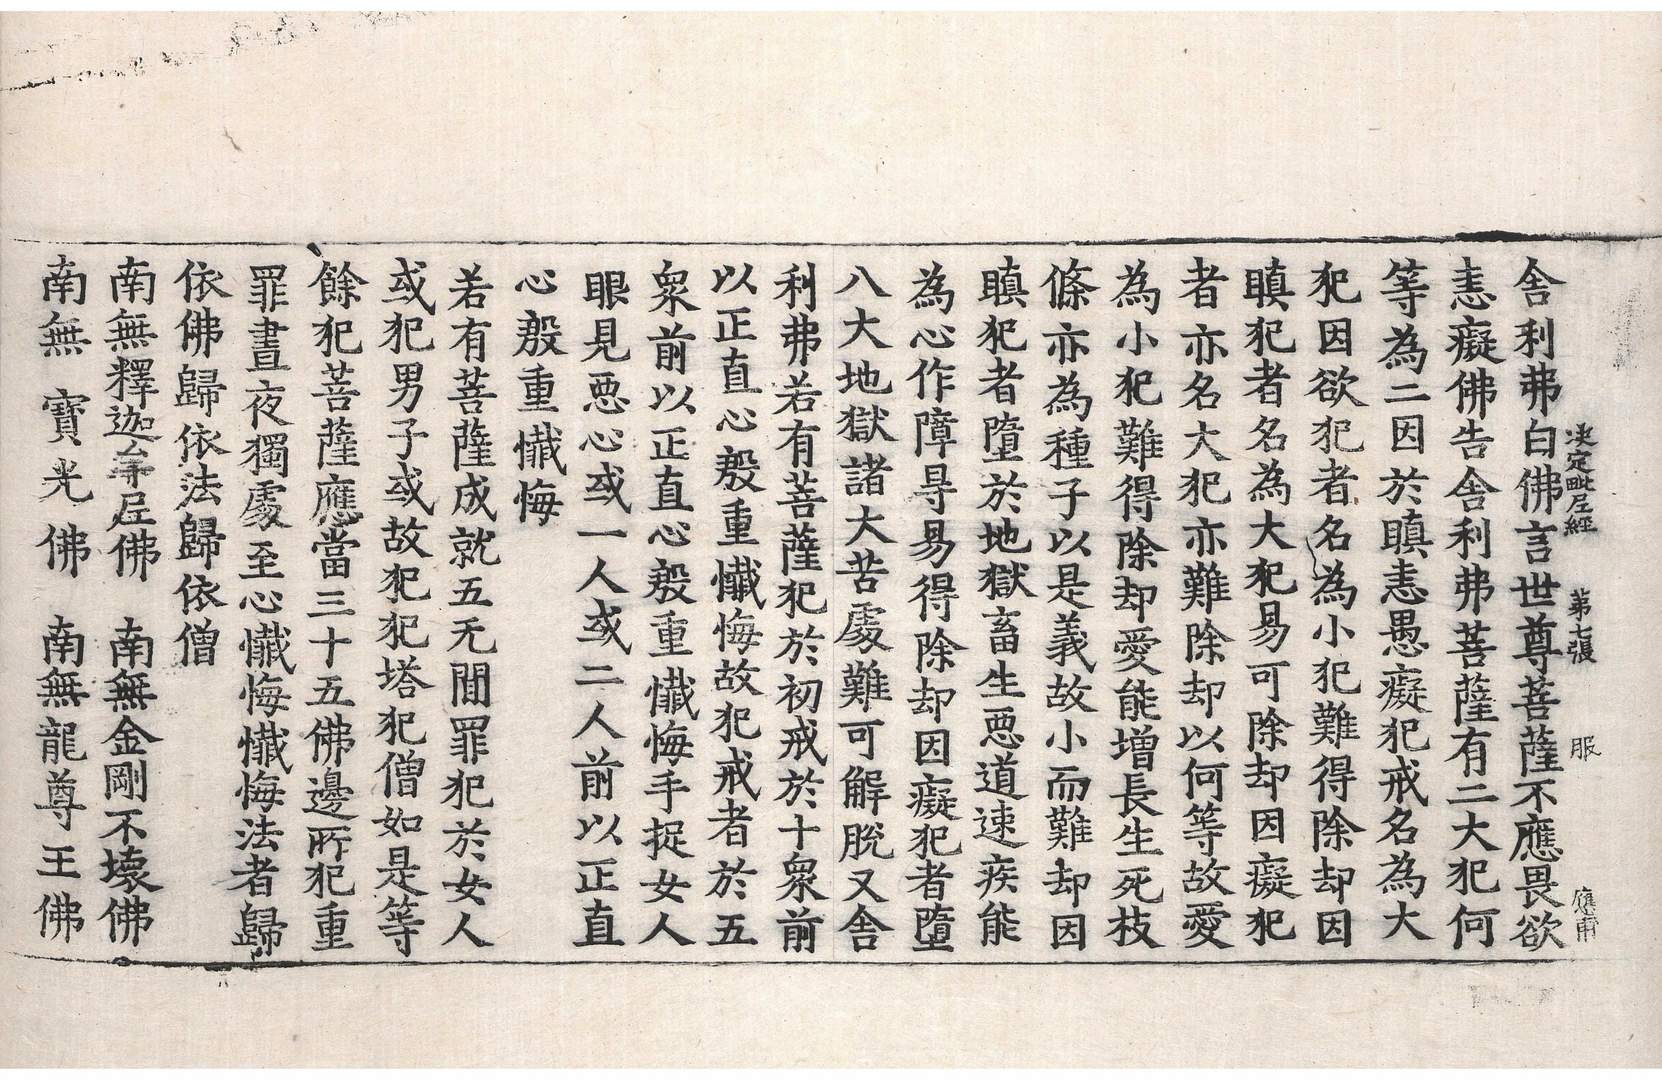 決定毗尼經 第七張 服 應甫
舍利弗白佛言世尊菩薩不應畏欲
恚癡佛告舍利弗菩薩有二大犯何
等為二因於瞋恚愚癡犯戒名為大
犯因欲犯者名為小犯難得除却因
瞋犯者名為大犯易可除却因癡犯
者亦名大犯亦難除却以何等故愛
為小犯難得除却愛能增長生死枝
條亦為種子以是義故小而難却因
瞋犯者墮於地獄畜生惡道速疾能
為心作障㝵易得除却因癡犯者墮
八大地獄諸大苦處難可解脫又舍
利弗若有菩薩犯於初戒於十衆前
以正直心慇重懺悔故犯戒者於五
衆前以正直心慇重懺悔手捉女人
眼見惡心或一人或二人前以正直
心慇重懺悔
若有菩薩成就五无閒罪犯於女人
或犯男子或故犯犯塔犯僧如是等
餘犯菩薩應當三十五佛邊所犯重
罪晝夜獨處至心懺悔懺悔法者歸
依佛歸依法歸依僧
南無釋迦牟尼佛 南無金剛不壞佛
南無寶光佛 南無龍尊王佛